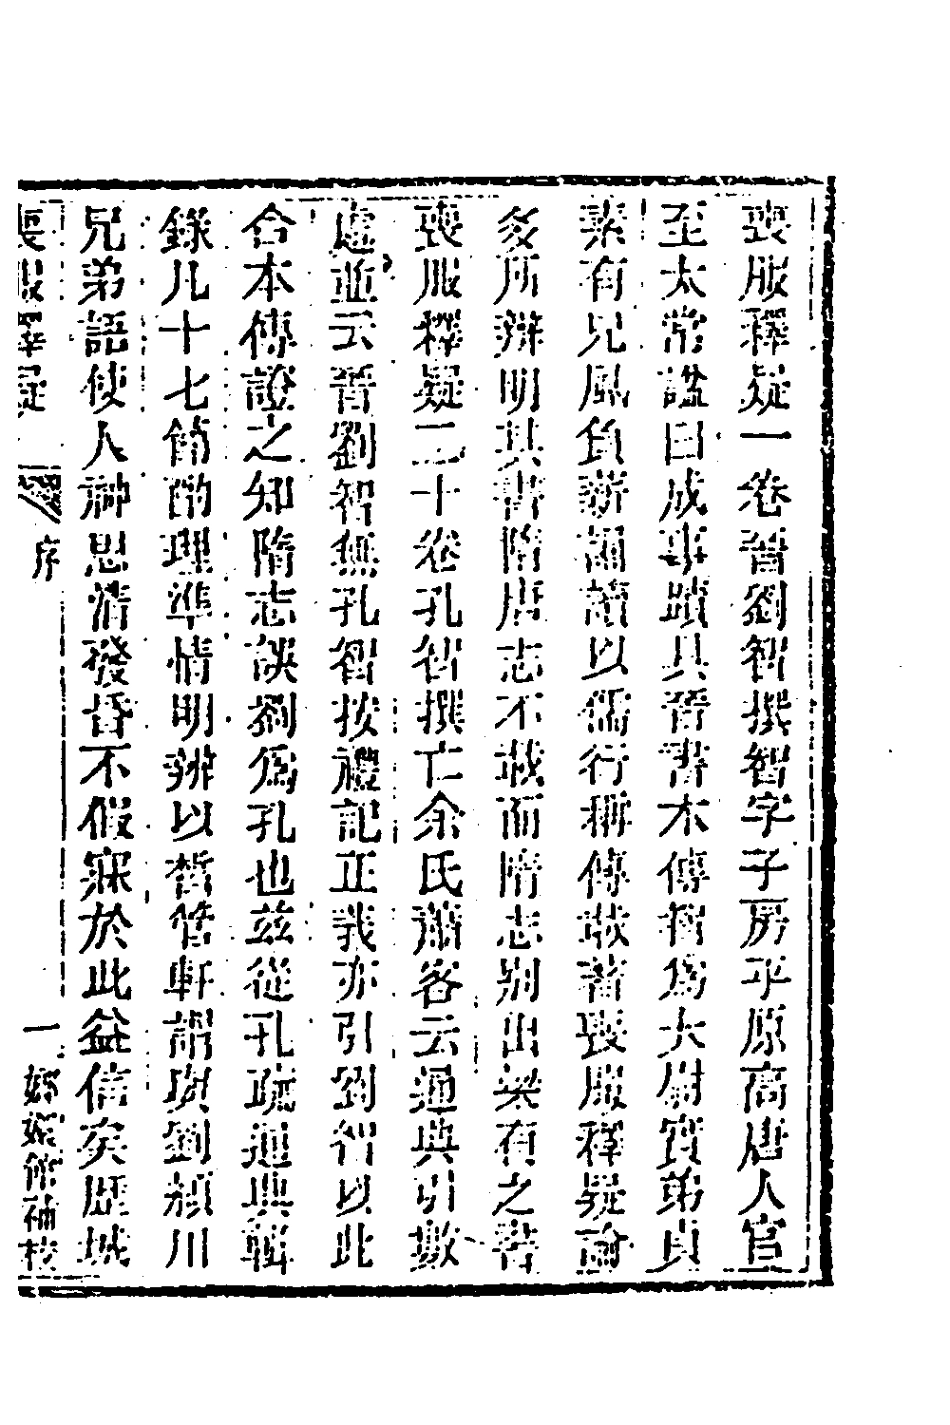 喪服釋疑一卷晉劉智撰智字子房平原高唐人官
至太常諡曰成事蹟具晉書本傳智爲太尉寔弟貞
素有兄風負薪誦讀以儒行稱傳載著喪服釋疑論
多所辨明其書隋唐志不載而隋志別出梁有之書
喪服釋疑二十卷孔智撰亡余氏蕭客云通典引數
處並云晉劉智無孔智按禮記正義亦引劉智以此
合本傳證之知隋志誤劉爲孔也茲從孔疏通典輯
錄凡十七節酌理準情明辨以晳管軒謂與劉潁川
兄弟語使人神思清發昏不假寐於此益信矣歷城
喪服釋疑 序 一 嫏嬛館補校